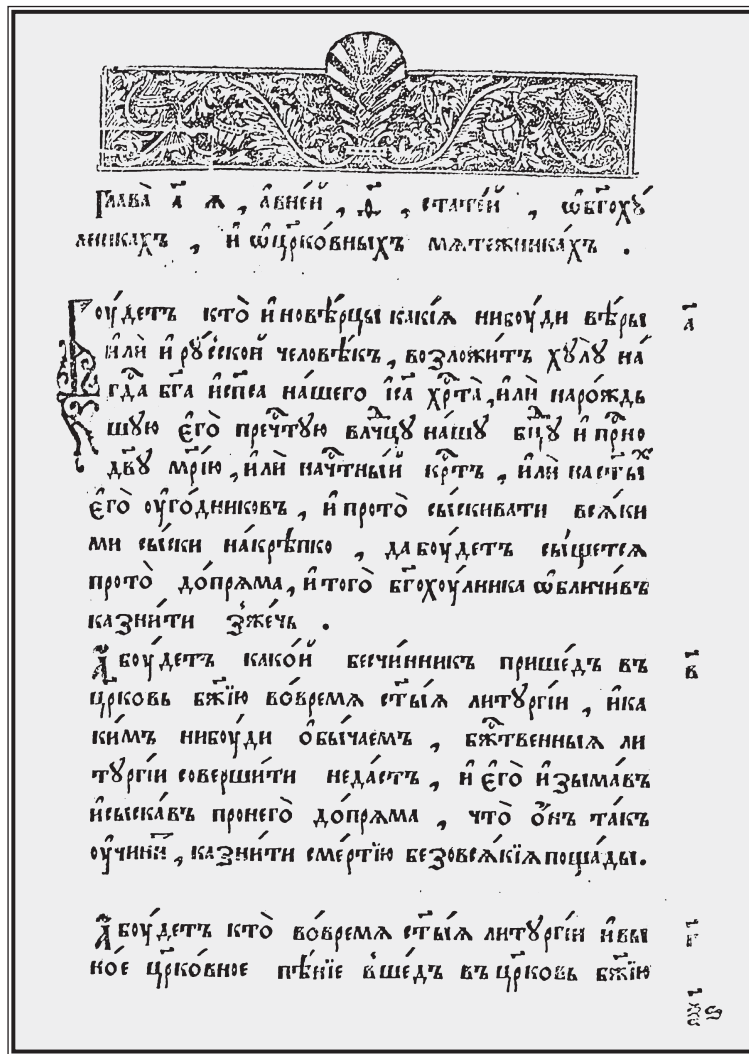 Глава̀ а҃ я , а́в̾не́й , ѳ҃ , стате́й , ѡ҆бг҃охꙋ́
лникахъ , и҆ ѡ҆цр҃ко́вныхъ мѧте́жника́хъ .
Боу́детъ кто̀ и҆новѣ́рцы какі́ѧ нибоу́ди вѣ́ры
а҃
и҆лѝ и҆ рꙋ́сской человѣ́къ , возложи́тъ хꙋлꙋ̀ на́
гдⷭ҇а бг҃а и҆спс҃а на́шего і҆с҃а хрⷭ҇та̀ , и҆лѝ наро́ждь
шꙋю є҆го̀ пречⷭ҇тꙋю влⷣчцꙋ на́шꙋ бцⷣꙋ и҆ прⷭ҇но
дв҃ꙋ мр҃і́ю , и҆лѝ начⷭ҇тны́й крⷭ҇тъ , и҆лѝ наст҃ыⷯ
є҆го̀ оу҆го́дниковъ , и҆ прото̀ сы́скивати всѧ́ки
ми сы́ски на́крѣпко , да боу́детъ сы́щетсѧ
прото̀ до́прѧма , и҆ того̀ бг҃охоу́лника ѡ҆бличи́въ
казни́ти зже́чь .
А҆ боу́детъ како́й бесчи́нникъ прише́дъ въ
в҃
цр҃ковь бж҃їю во́времѧ ст҃ы́ѧ литꙋргі́и , и҆ка
ки́мъ нибоу́ди о҆бы́чаемъ , бжⷭ҇твенныѧ ли
тꙋргі́и соверши́ти неда́стъ , и҆ є҆го̀ и҆зыма́въ
и҆сыска́въ пронего̀ до́прѧма , что̀ о҆́нъ та́къ
оу҆чини́т , казни́ти сме́ртїю безовсѧ́кїѧ поща́ды .
А҆ боу́детъ кто̀ во́времѧ ст҃ы́ѧ литꙋргі́и и҆в̾и
г҃
но́е цр҃ко́вное пѣ́нїе в̾ше́дъ въ цр҃ковь бж҃їю